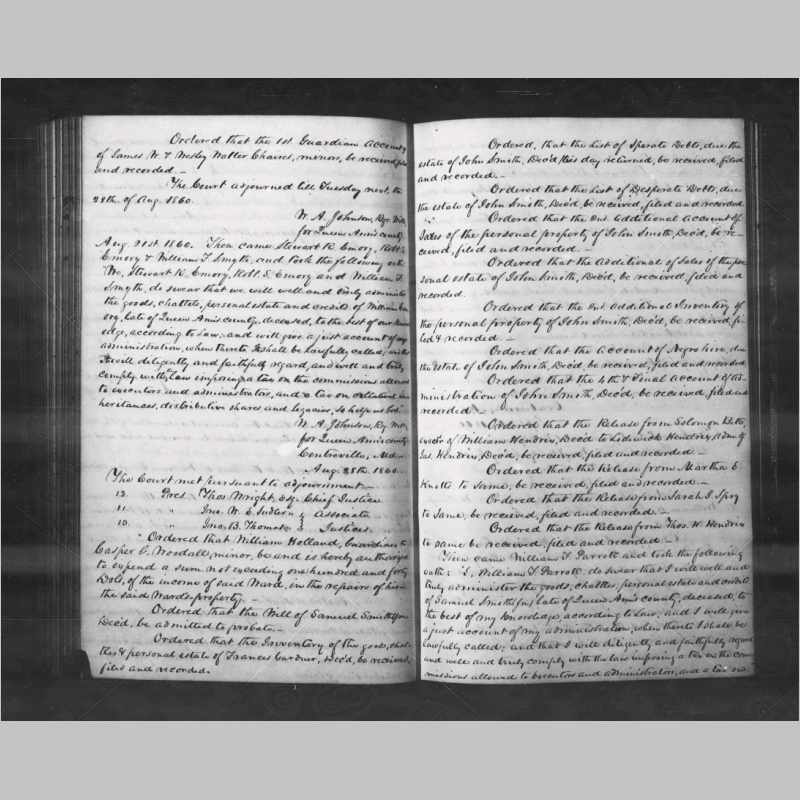 Ordered that the 1st Guardian Account
of James W. & Wesley Walter Chaires, minors, be received, filed
and recorded. —
The Court adjourned till Tuesday next, the
28th. of Aug. 1860.
W. A. Johnson, Reg. Wills
for Queen Ann's county.
Aug. 21st. 1860. Then came Stewart R. Emory, Robt. S.
Emory & William T. Smyth, and took the following oath
"We, Stewart R. Emory, Robt. S. Emory and William T.
Smyth, do swear that we will well and truly administer
the goods, chattels, personal estate and credits of William Em-
ory, late of Queen Ann's county, deceased, to the best of our knowl-
edge, according to law; and will give a just account of my
administration, when thereto I shall be lawfully called; and that
I will diligently and faithfully regard, and well and truly
comply with, law imposing a tax on the commissions allowed
to executors and administrators, and a tax on collateral in-
heritances, distributive shares and legacies, So help us God."
W. A. Johnson, Reg. Wills
for Queen Ann's county
Centreville, Md. —
Aug. 28th. 1860. —
The Court met pursuant to adjournment —
12. Pres. Thos. Wright, Esq. Chief Justice
11. " Jno. W. E. Sudler & Associate
10. " Jno. B. Thomas & Justices.
Ordered that William Holland, Guardian to
Casper P. Woodall, minor, be and is hereby authorized
to expend a sum not exceeding one hundred and forty
Dols, of the income of said Ward, in the repairs of his
the said Ward's property. —
Ordered that the Will of Samuel Smith
Dec'd, be admitted to probate. —
Ordered that the Inventory of the goods, chat-
tles & personal estate of Frances Gardner, Dec'd, be received,
filed and recorded.
Ordered, that the List of Sperate Debts, due the
estate of John Smith, Dec'd, this day returned, be received, filed
and recorded. —
Ordered that the List of Desperate Debts, due
the estate of John Smith, Dec'd, be received, filed and recorded
Ordered that the 1st. Additional Account of
Sales of the personal property of John Smith, Dec'd, be re-
ceived, filed and recorded. —
Ordered that the Additional of Sales of the per-
sonal estate of John Smith, Dec'd, be received, filed and
recorded.
Ordered that the 1st. Additional Inventory of
the personal property of John Smith, Dec'd, be received, fi-
led & recorded —
Ordered that the Account of Negro hire, due
the estate of John Smith, Dec'd, be received, filed and recorded.
Ordered that the 4th. & Final Account of Ad-
ministration of John Smith, Dec'd, be received, filed and
recorded. —
Ordered that the Release from Solomon
of William Hendrix, Dec'd to Hendrix, Adm. of
Jas. Hendrix, Dec'd, be received, filed and recorded. —
Ordered that the Release from Martha E.
Knotts to Same, be received, filed and recorded. —
Ordered that the Release from Sarah J. Spry
to Same, be received, filed and recorded. —
Ordered that the Release from Thos. W. Hendrix
to same be received, filed and recorded. —
Then came William T. Parrott and took the following
oath: "I, William T. Parrott, do swear that I will well and
truly administer the goods, chattles, personal estate and credits
of Samuel Smith late of Queen Ann's county, deceased, to
the best of my knowledge, according to law, and I will give
a just account of my administration, when thereto I shall be
lawfully called; and that I will diligently and faithfully regard
and well and truly comply with the law imposing a tax on the com-
missions allowed to executors and administrators, and a tax on